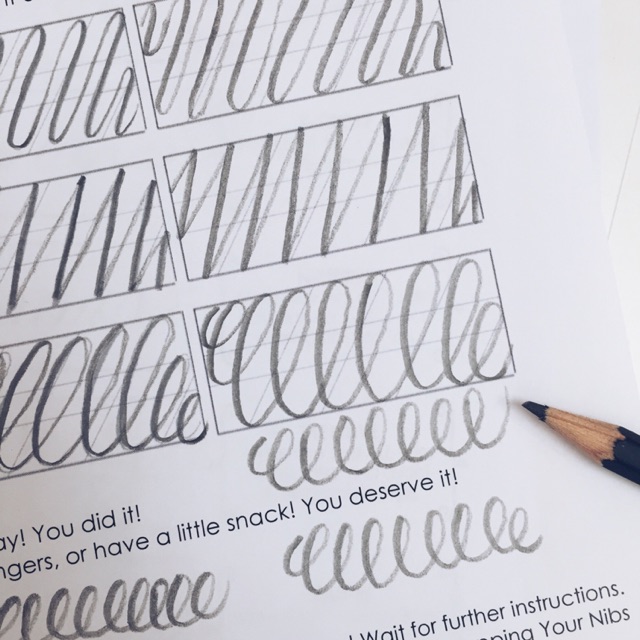 ay! You did it!
ngers, or have a little snack! You deserve it!
! Wait for further instructions.
ping Your Nibs